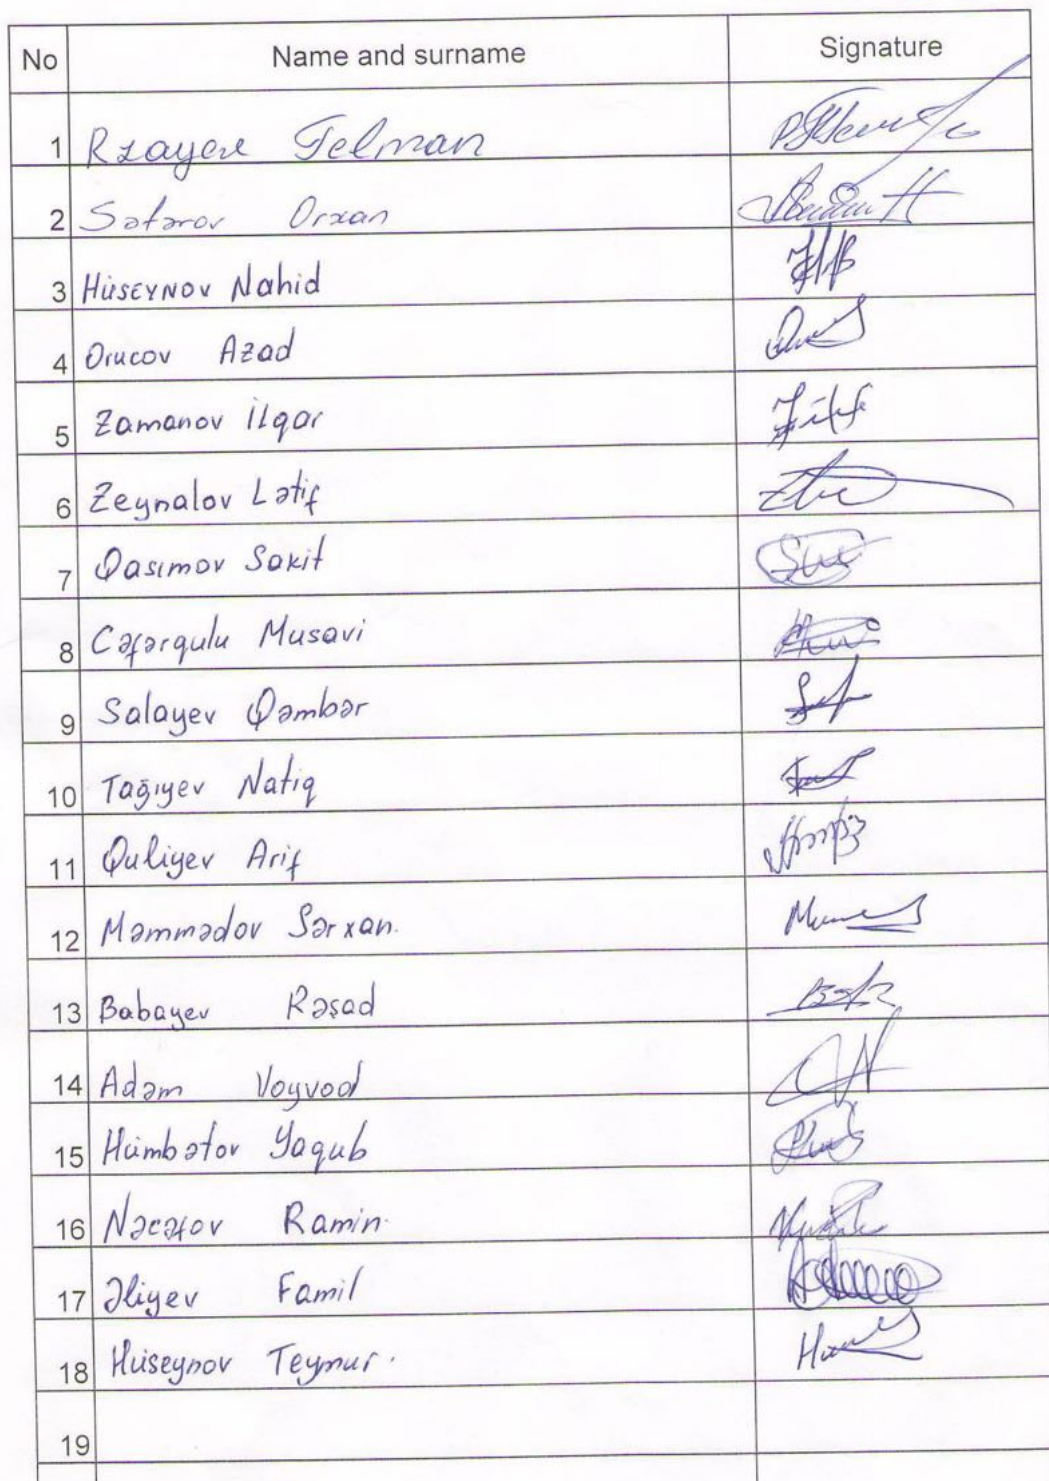 No Name and surname Signature
1 Rzayev Telman
2 Səfərov Orxan
3 Hüseynov Nahid
4 Orucov Azad
5 Zamanov İlqar
6 Zeynalov Lətif
7 Qasımov Sakit
8 Cəfərqulu Musavi
9 Salayev Qəmbər
10 Tağıyev Natiq
11 Quliyev Arif
12 Məmmədov Sərxan.
13 Babayev Rəşad
14 Adəm Voyvod
15 Hümbətov Yaqub
16 Nəcəfov Ramin.
17 Əliyev Famil
18 Hüseynov Teymur.
19